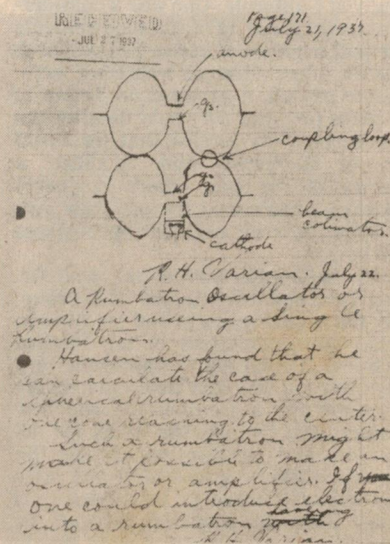 RECEIVED
page 171
July 21, 1937.
JUL 27 1937
anode.
gs.
coupling loop
beam
colimator.
cathode
R. H. Varian. July 22.
A Rumbatron Oscillator or
Amplifier useing a Single
Rumbatron.
Hansen has found that he
can calculate the case of a
spherical rumbatron with
one cone reaching to the center.
Such a rumbatron might
make it possible to make an
oscilator or amplifier. If
one could introduce electrons
into a rumbatron having
R. H. Varian.